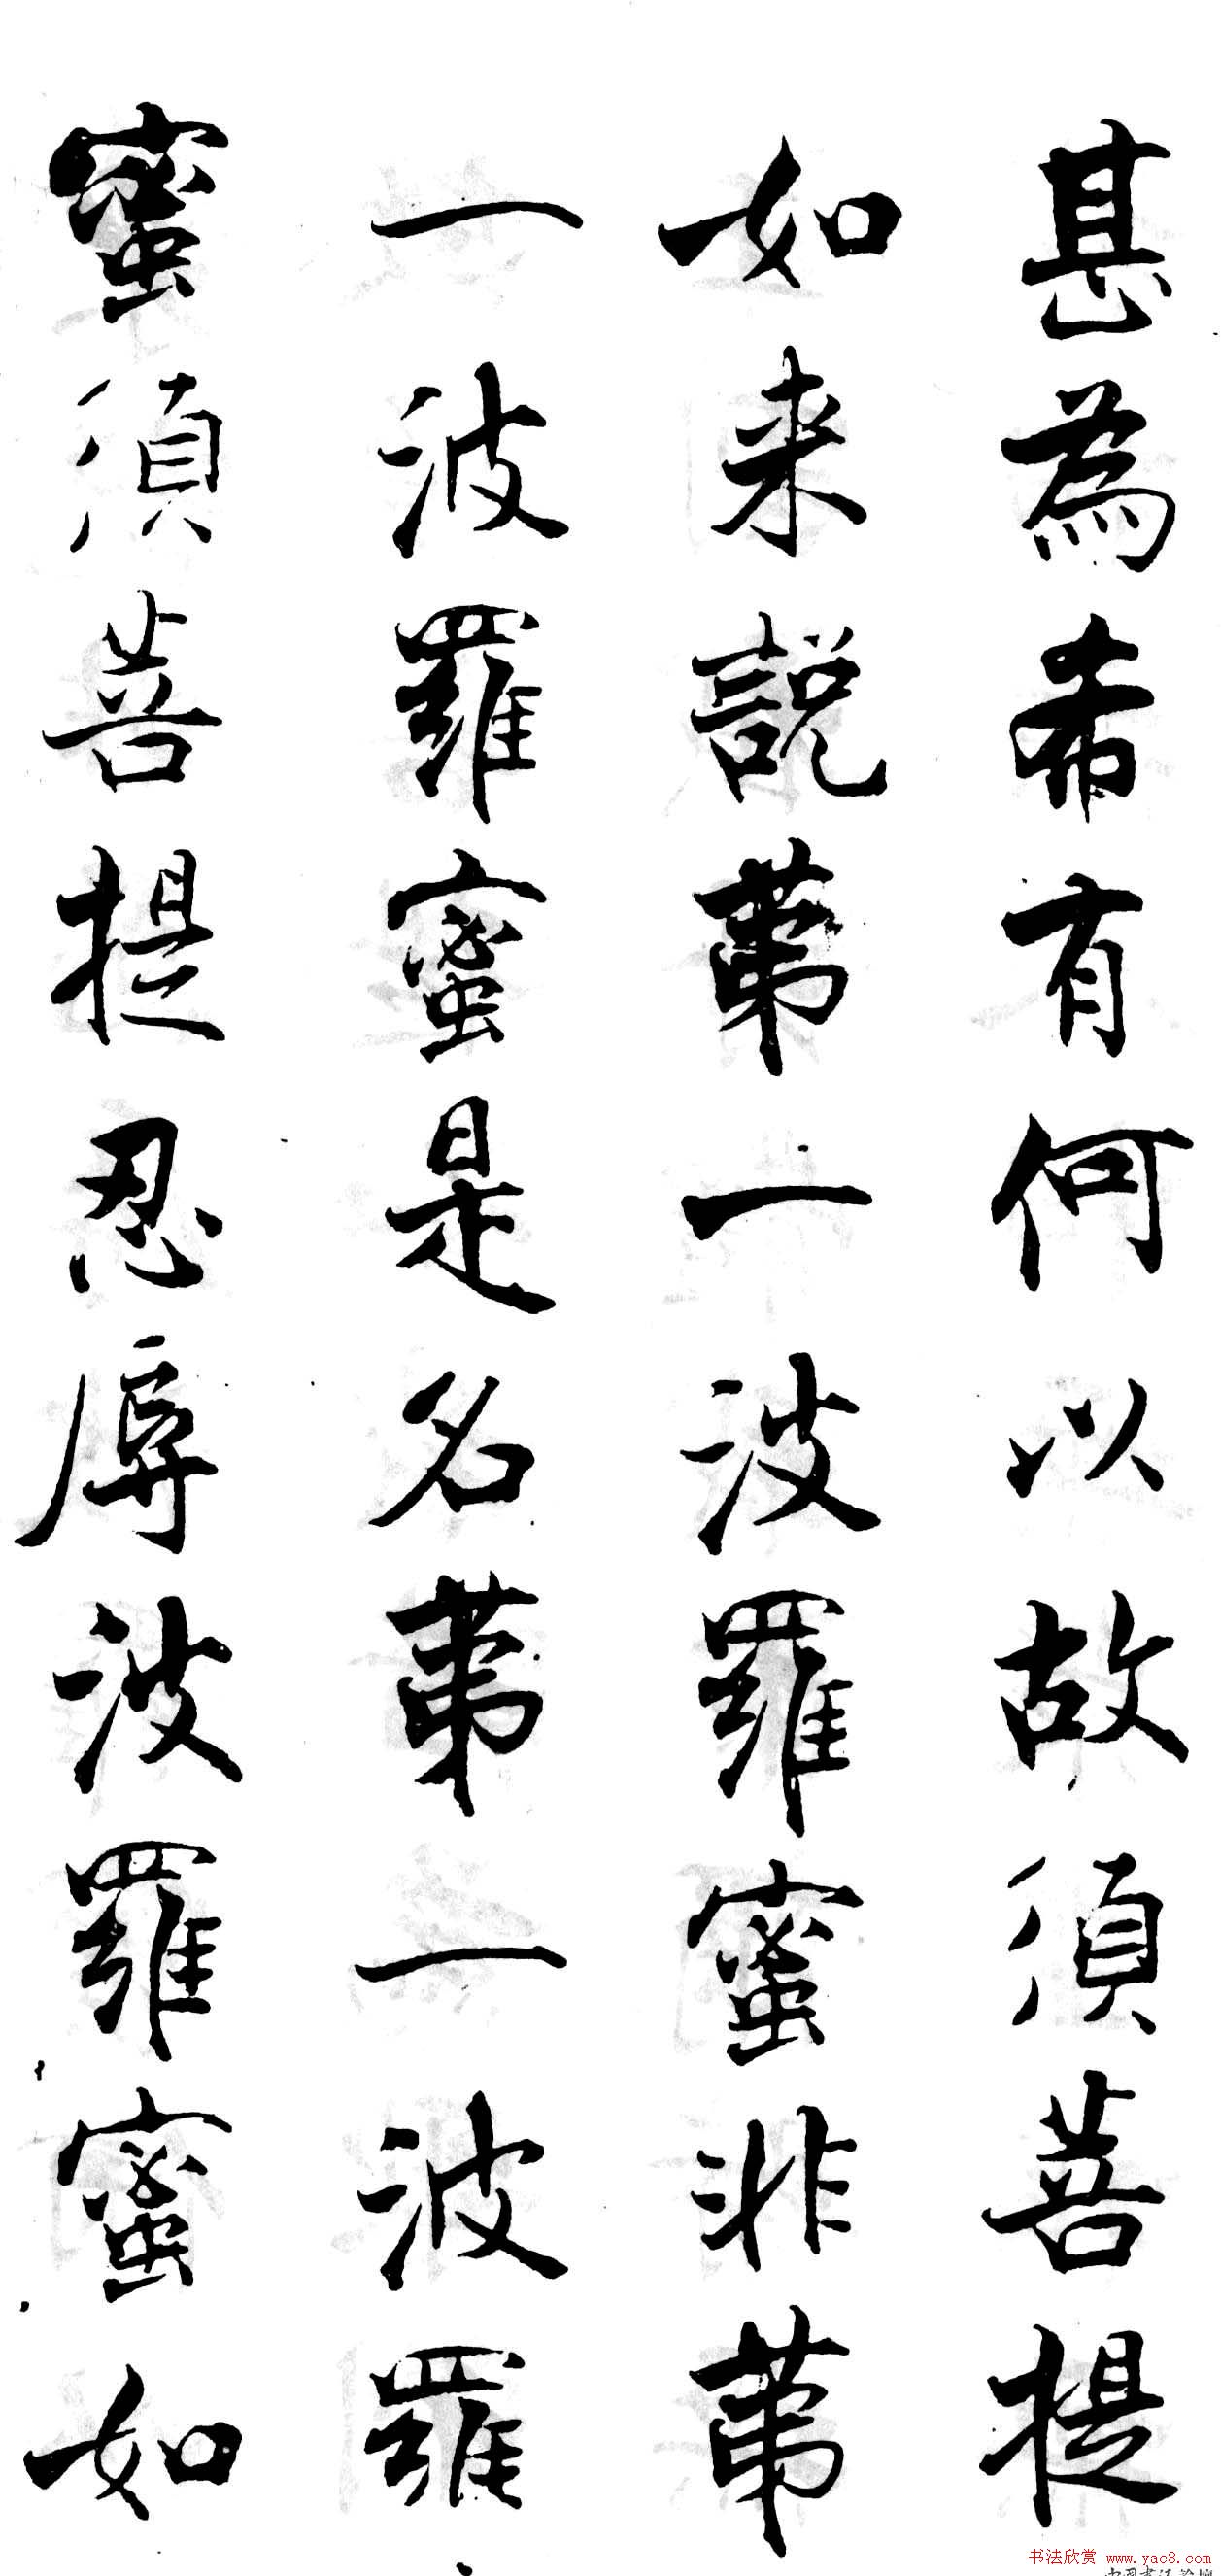 甚為希有何以故須菩提
如来說苐一波羅蜜非苐
一波羅蜜是名苐一波羅
蜜須菩提忍辱波羅蜜如
书法欣赏 www.yac8.com